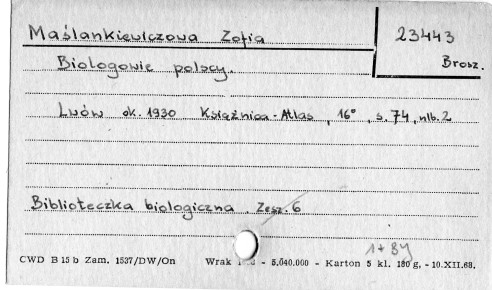 Maślankiewiczowa Zofia
23443
Biologowie polscy.
Brosz.
Lwów ok. 1930 Książnica-Atlas, 16°, s. 74, nlb. 2
Biblioteczka biologiczna. Zesz. 6
CWD B 15 b Zam. 1537/DW/On Wrak - 5.040.000 - Karton 5 kl. 180 g, - 10.XII.68.